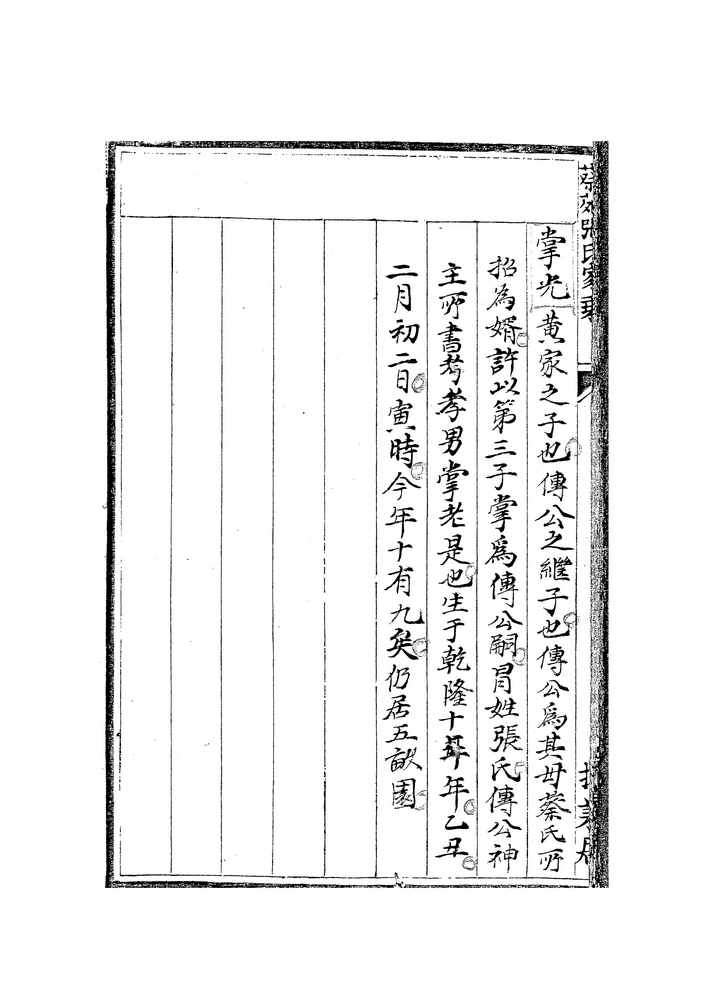 張氏家乘
掌光 黃家之子也傳公之繼子也傳公爲其母蔡氏所
招為婿許以第三子掌爲傳公嗣冒姓張氏傳公神
主所書考孝男掌老是也生于乾隆十年乙丑
二月初二日寅時今年十有九矣仍居五畝園